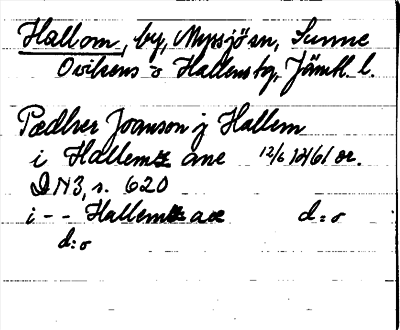 Hallom, by, Myssjö sn, Sunne
Ovikens o Hallens tg, Jämtl. l.
Pædher Joanson j Hallem
i Hallem ane 12/6 1461 or.
DN3, s. 620
i -- Hallem aæ d:o
d:o